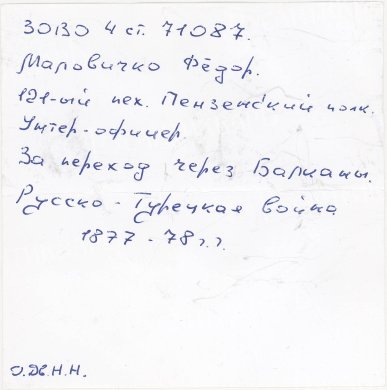 ЗОВО 4 ст. 71087.
Маловичко Фёдор.
121-ый пех. Пензенский полк.
Унтер-офицер.
За переход через Балканы.
Русско-Турецкая война
1877-78 г.г.
О.Дв.Н.Н.